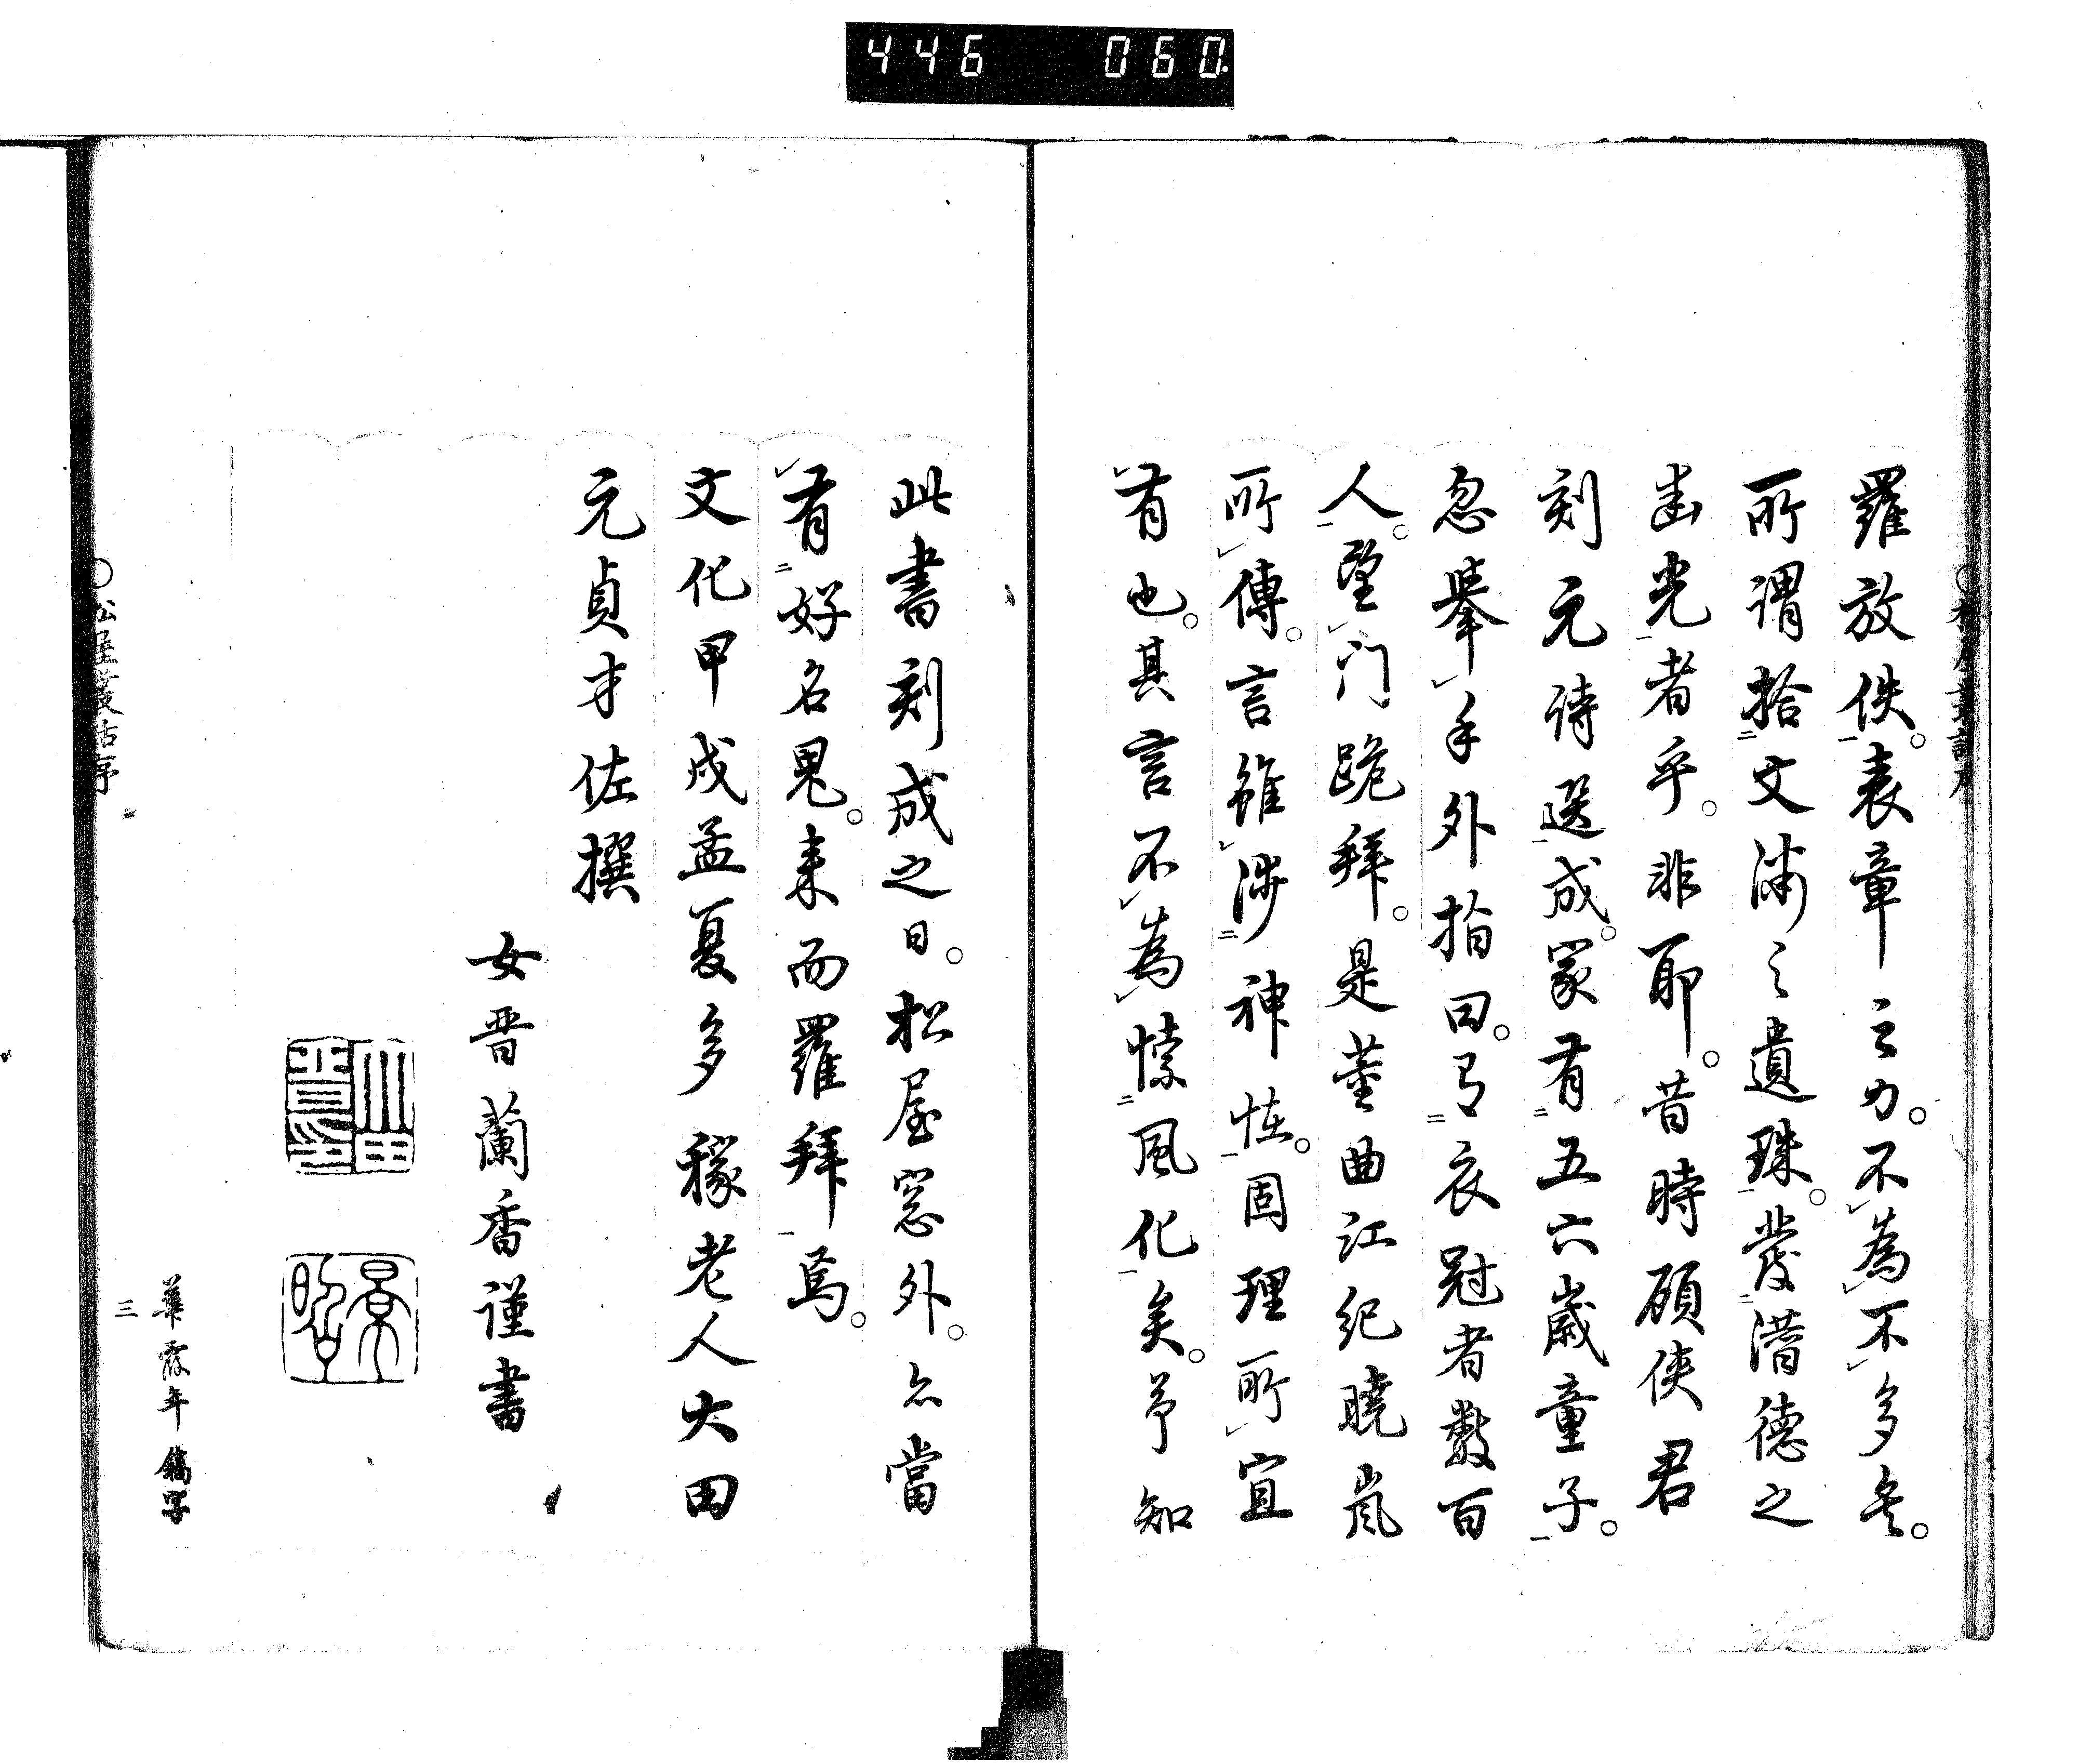 446 060
羅放佚。表章之力。不為不多矣。
所謂拾文沛之遺珠。發潛德之
幽光者乎。非耶。昔時顧俠君
刻元詩選成。家有五六歲童子。
忽擧手外指曰。有衣冠者數百
人。望門跪拜。是董曲江紀曉嵐
所傳。言雖涉神怪。固理所宜
有也。其言不為愫風化矣。予知
此書刻成之日。松屋窓外。亦當
有好名鬼。来而羅拜焉。
文化甲戌孟夏多稼老人大田
元貞才佐撰
女晋蘭香謹書
〇松屋叢話序
三